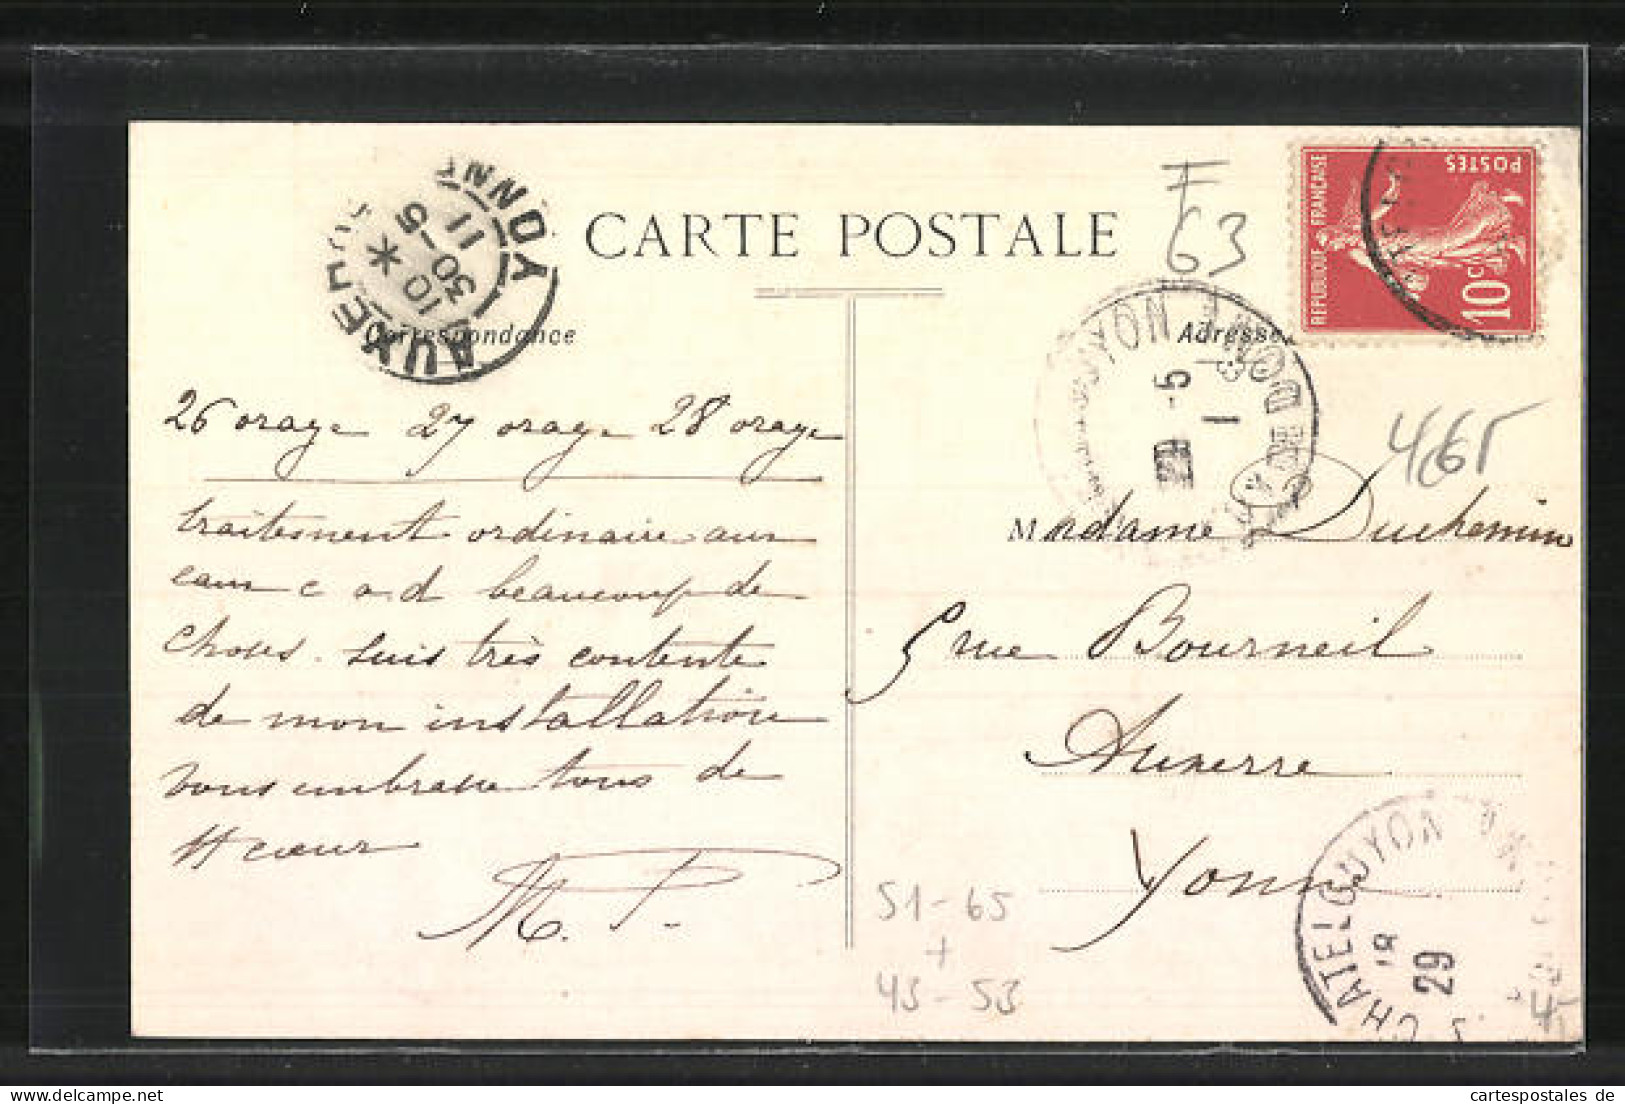 CARTE POSTALE
F
63
REPUBLIQUE FRANÇAISE
POSTES
10c
AUXERRE YONNE
10 *
30-5
11
Correspondance
Adresse
26 orage 27 orage 28 orage
traitement ordinaire aux
eaux c a d beaucoup de
choses. suis très contente
de mon installation
vous embrasse tous de
tt cœur
M. P.
465
Madame Duchemin
5 rue Bourneil
Auxerre
Yonne
GUYON PUY DE DOME
29 -5
CHATELGUYON
18
29
51-65
+
43-53
45
www.cartespostales.de